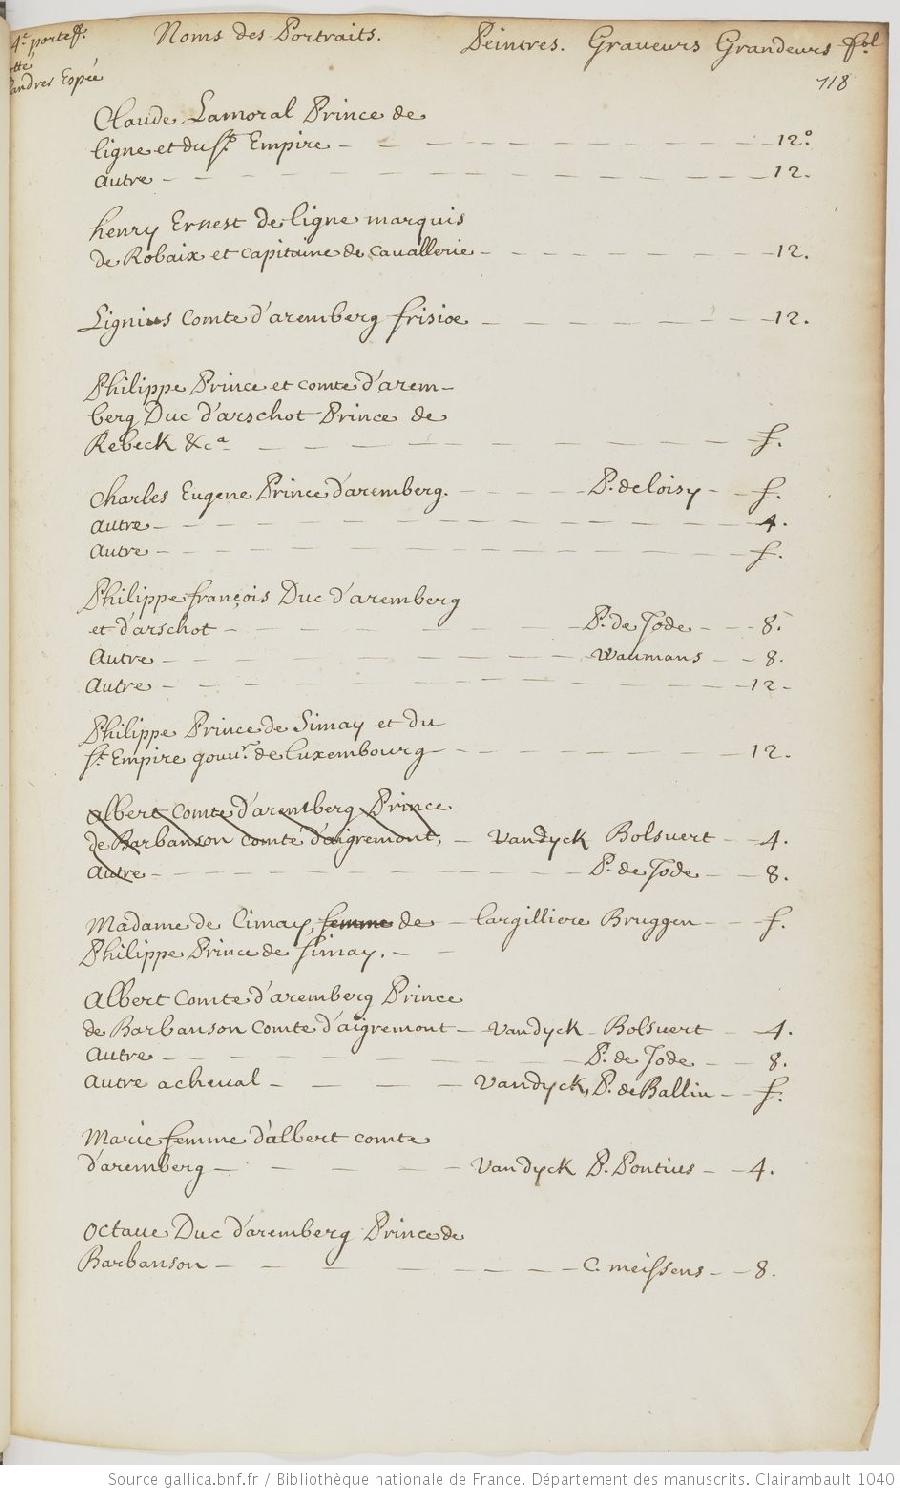 4e portef. Noms des Portraits. Peintres. Graveurs Grandeurs fol
718
Espée
Claude Lamoral Prince de
ligne et du St. Empire - 12°
autre - 12.
henry Ernest de ligne marquis
de Robaix et capitaine de cavallerie - 12.
Lignius comte d'aremberg frisiæ - 12.
Philippe Prince et comte d'arem-
berg Duc d'arschot Prince de
Rebeck &ca - f.
Charles Eugene Prince d'aremberg. - P. de loisy - f.
autre - 4.
Autre - f.
Philippe françois Duc d'aremberg
et d'arschot - P. de Jode - 8.
Autre - Waumans - 8.
Autre - 12 -
Philippe Prince de Simay et du
St. Empire gouvr. de luxembourg - 12.
albert comte d'aremberg Prince
de Barbanson comte d'aigremont, - Vandyck Bolsuert - 4.
autre - P. de Jode - 8.
Madame de Cimay, femme de - largilliere Bruggen - f.
Philippe Prince de simay. -
Albert comte d'aremberg Prince
de Barbanson comte d'aigremont - Vandyck - Bolsuert - 4.
Autre - P. de Jode - 8.
Autre acheval - Vandyck, P. de Ballin - f.
Marie femme d'albert comte
d'aremberg - Vandyck P. Pontius - 4.
Octaue Duc d'aremberg Prince de
Barbanson - C. meissens - 8.
Source gallica.bnf.fr / Bibliothèque nationale de France. Département des manuscrits. Clairambault 1040